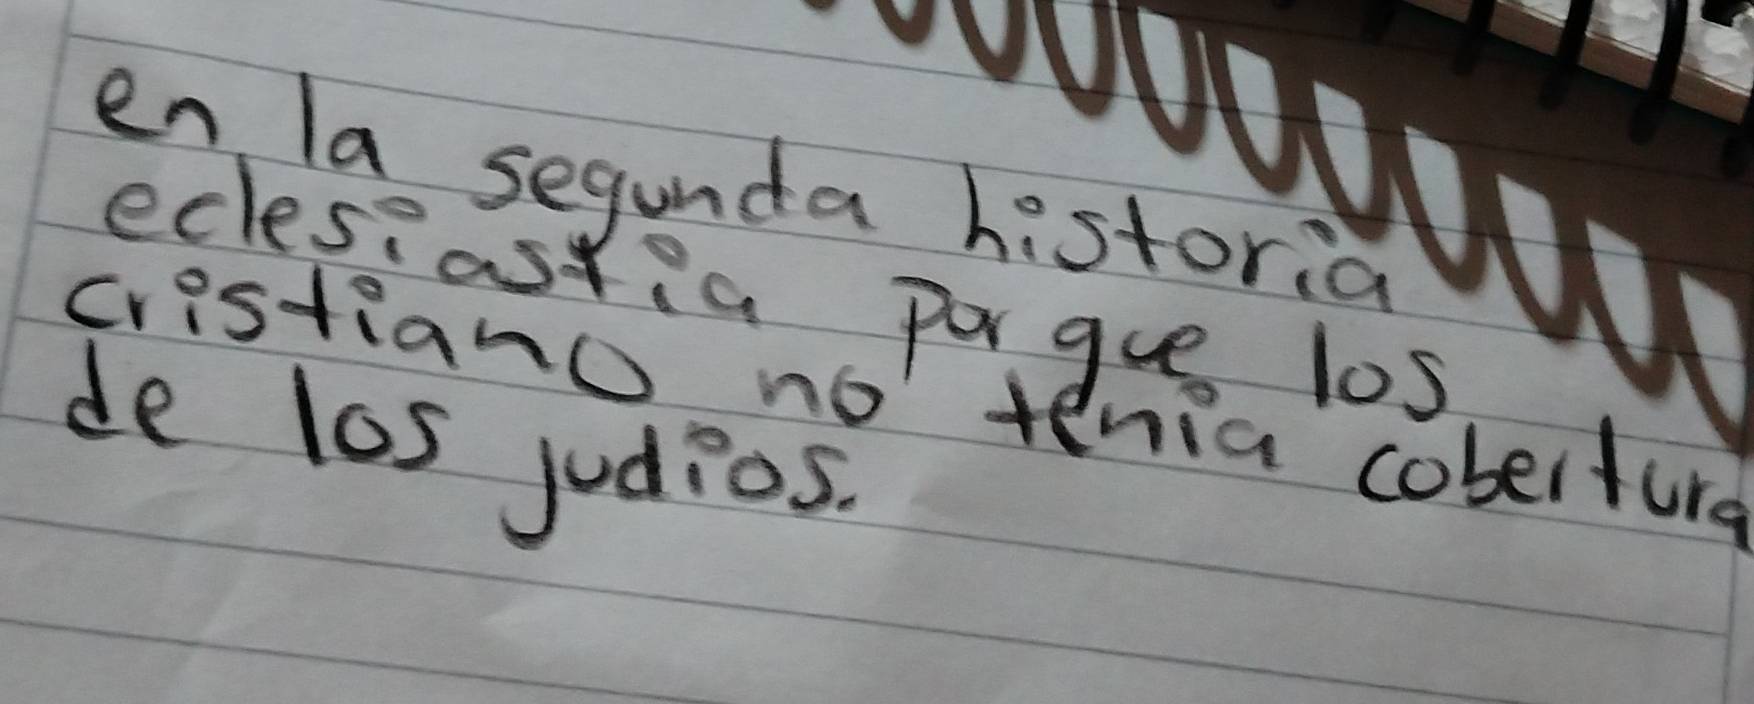 en la segunda historia
eclesiastia por que los
cristiano no tenia cobertura
de los judios.